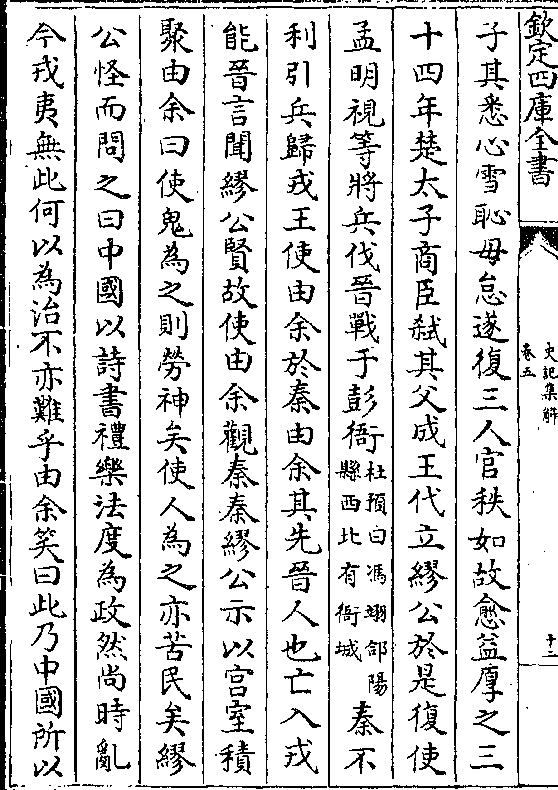 欽定四庫全書
史記集解
卷五
十二
子其悉心雪恥毋怠遂復三人官秩如故愈益厚之三
十四年楚太子商臣弑其父成王代立繆公於是復使
孟明視等將兵伐晉戰于彭衙杜預曰馮翊郃陽縣西北有衙城秦不
利引兵歸戎王使由余於秦由余其先晉人也亡入戎
能晉言聞繆公賢故使由余觀秦秦繆公示以宫室積
聚由余曰使鬼為之則勞神矣使人為之亦苦民矣繆
公怪而問之曰中國以詩書禮樂法度為政然尚時亂
今戎夷無此何以為治不亦難乎由余笑曰此乃中國所以